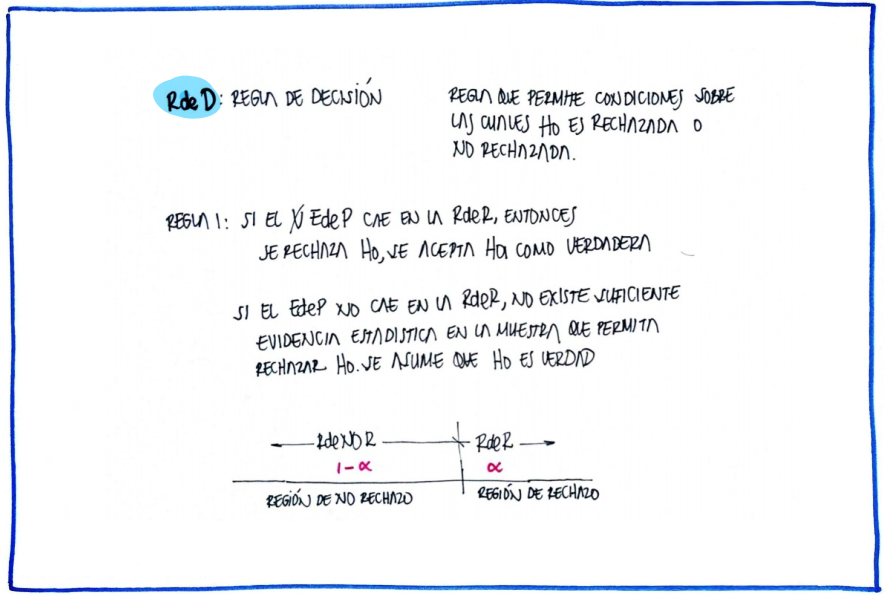 RdeD: REGLA DE DECISIÓN
REGLA QUE PERMITE CONDICIONES SOBRE
LAS CUALES Ho ES RECHAZADA O
NO RECHAZADA.
REGLA 1: SI EL EdeP CAE EN LA RdeR, ENTONCES
SE RECHAZA Ho, SE ACEPTA Ha COMO VERDADERA
SI EL EdeP NO CAE EN LA RdeR, NO EXISTE SUFICIENTE
EVIDENCIA ESTADISTICA EN LA MUESTRA QUE PERMITA
RECHAZAR Ho. SE ASUME QUE Ho ES VERDAD
RdeNOR RdeR
1-α α
REGIÓN DE NO RECHAZO REGIÓN DE RECHAZO